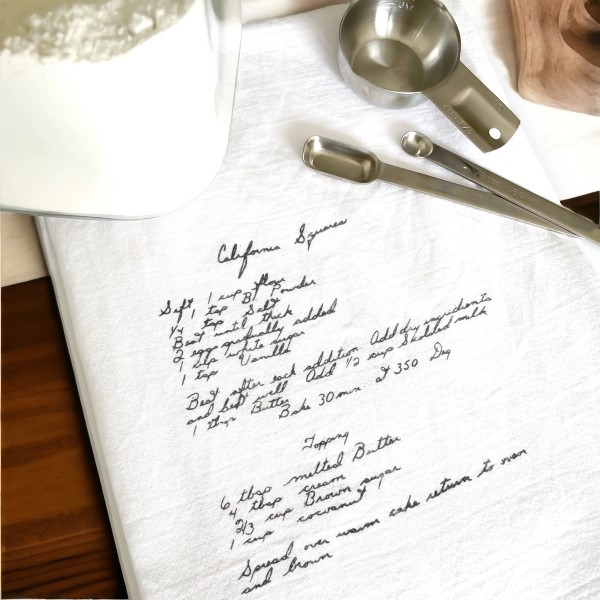 California Squares
Sift 1 cup flour
1 tsp B. Powder
1/4 tsp Salt
Beat until thick
2 eggs gradually added
1 cup white sugar
1 tsp Vanilla
Beat after each addition Add dry ingredients
and beat well Add 1/2 cup Scalded milk
1 tbsp Butter Bake 30 min. at 350 Deg
Topping
6 tbsp melted Butter
4 tbsp cream
2/3 cup Brown sugar
1 cup cocoanut
Spread over warm cake return to oven
and brown